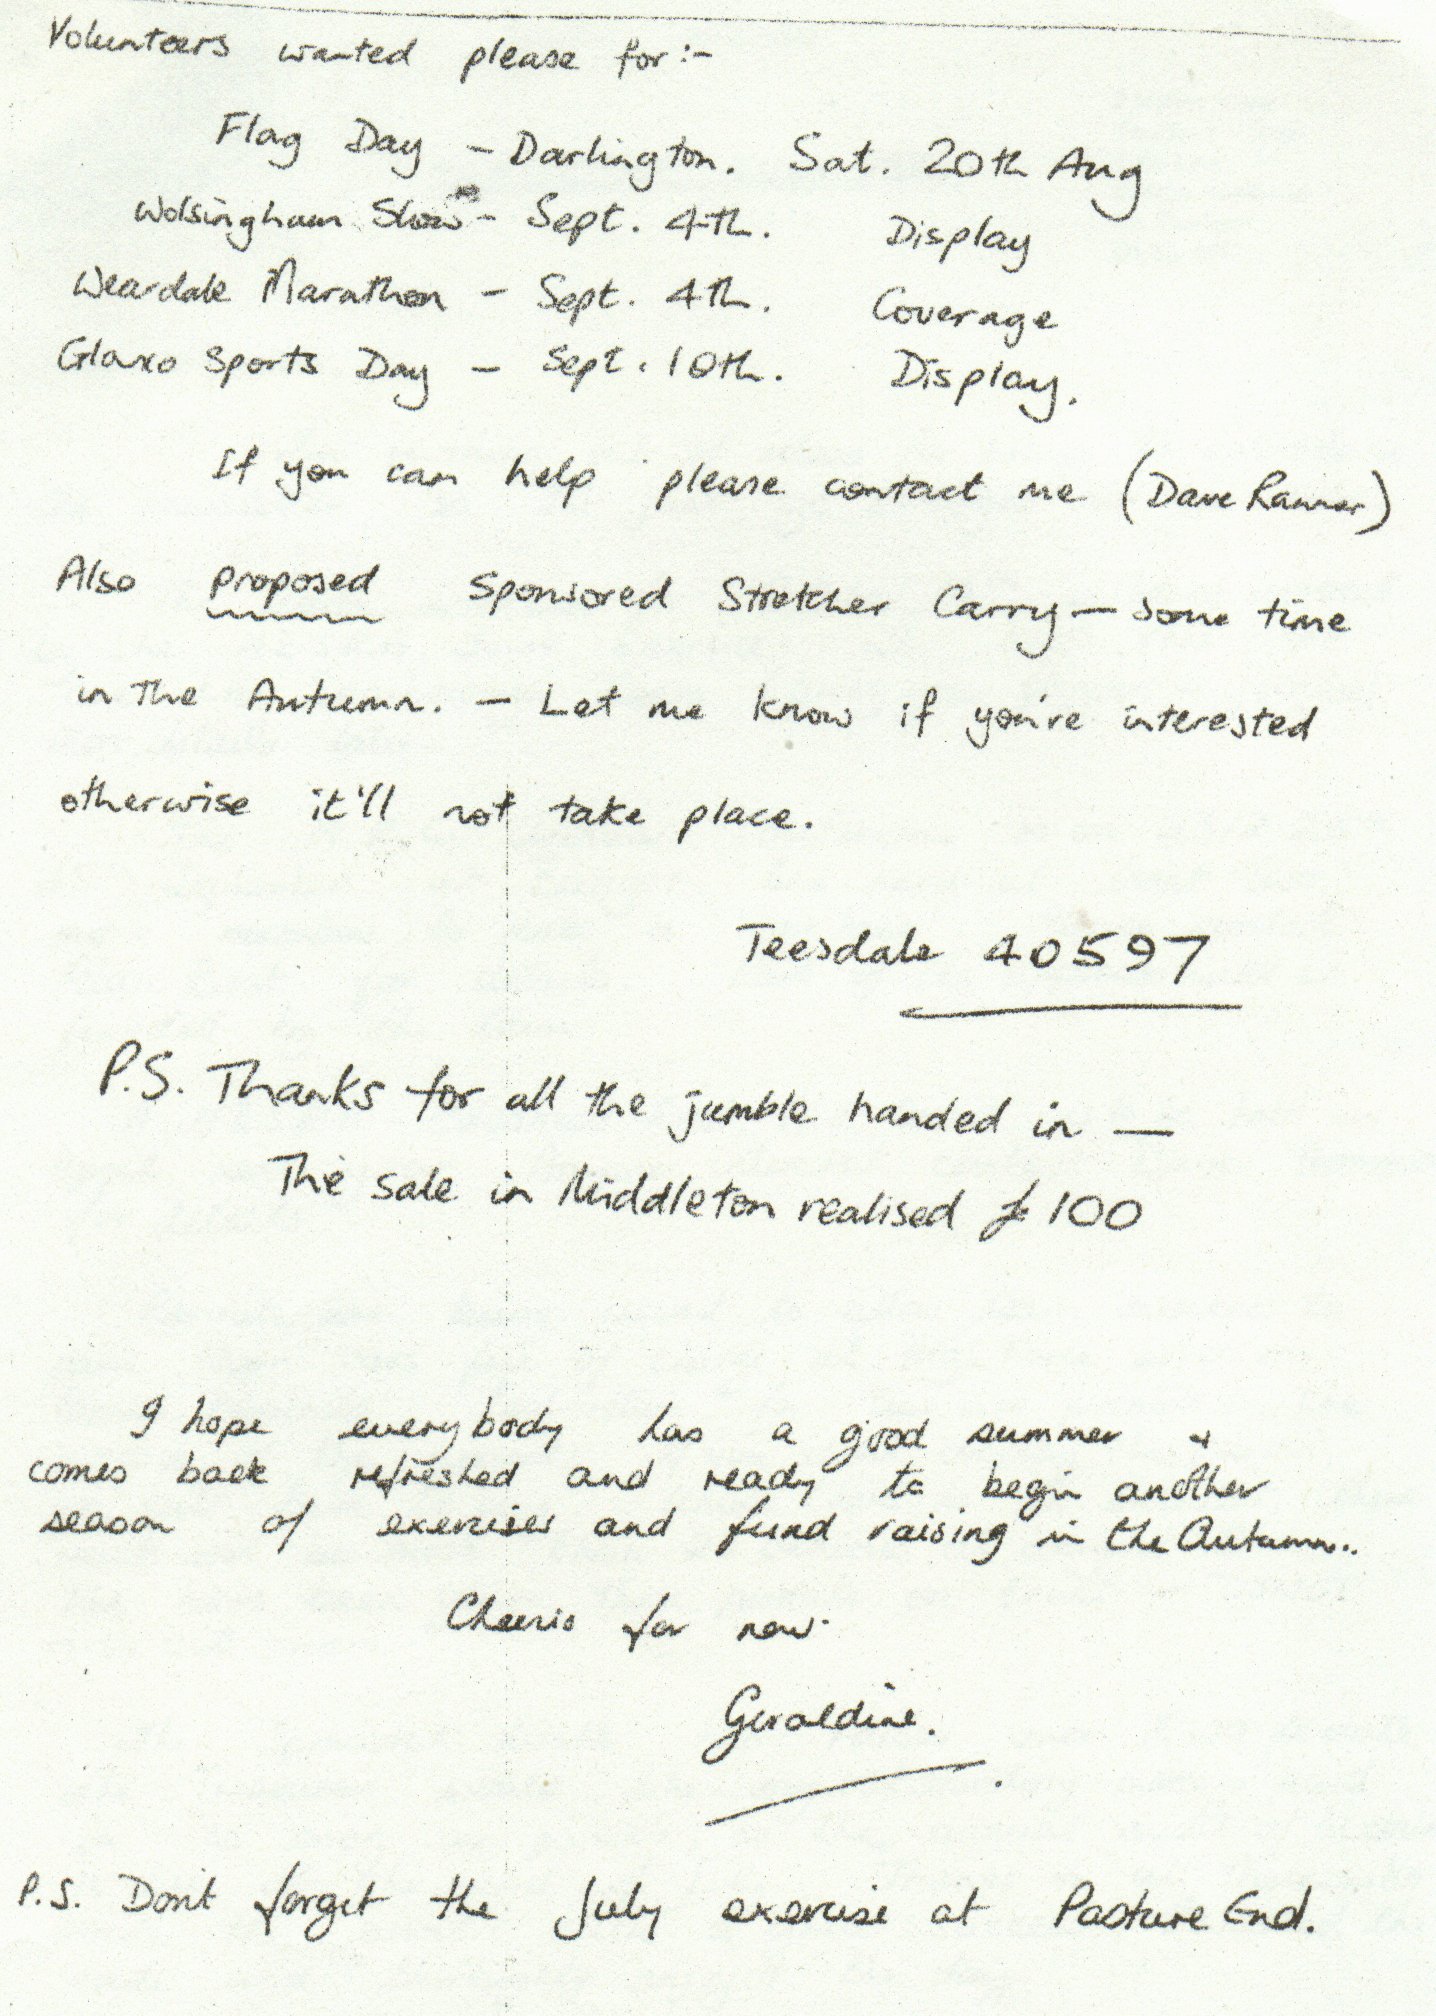 Volunteers wanted please for:-
Flag Day - Darlington. Sat. 20th Aug
Wolsingham Show - Sept. 4th. Display
Weardale Marathon - Sept. 4th. Coverage
Glaxo Sports Day - Sept. 10th. Display.
If you can help please contact me (Dave Ranner)
Also proposed Sponsored Stretcher Carry - some time
in the Autumn. - Let me know if you're interested
otherwise it'll not take place.
Teesdale 40597
P.S. Thanks for all the jumble handed in —
The sale in Middleton realised £100
I hope everybody has a good summer &
comes back refreshed and ready to begin another
season of exercises and fund raising in the Autumn..
Cheerio for now.
Geraldine.
P.S. Don't forget the July exercise at Pasture End.